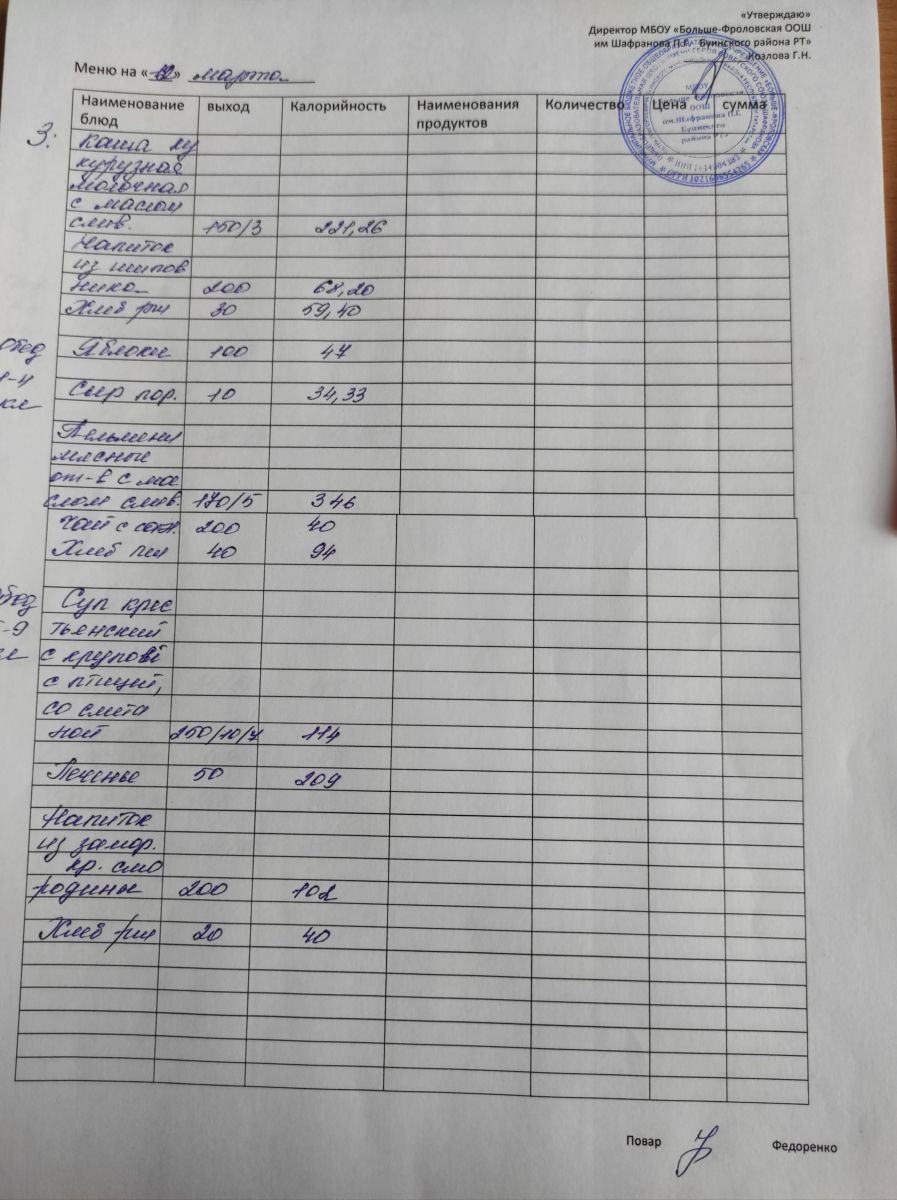 «Утверждаю»
Директор МБОУ «Больше-Фроловская ООШ
им Шафранова П.Г. Буинского района РТ»
Козлова Г.Н.
Меню на «12» марта
Наименование блюд выход Калорийность Наименования продуктов Количество Цена сумма
З:
Каша ку
курузная
молочная
с маслом
слив. 150/3 221,26
Напиток
из шипов
ника 200 68,20
Хлеб рж 30 59,40
обед
Яблоки 100 47
1-4
Сыр пор. 10 34,33
кл
Пельмени
мясные
от-в с мас
слом слив. 170/5 346
Чай с сах. 200 40
Хлеб пш 40 94
Обед
Суп крес
5-9
тьянский
кл
с крупой
с птицей,
со смета
ной 250/10/7 114
Печенье 50 209
Напиток
из замор.
кр. смо
родины 200 102
Хлеб рж 20 40
Повар Федоренко
МБОУ
ООШ
им.Шафранова П.Г.
Буинского
района РТ»